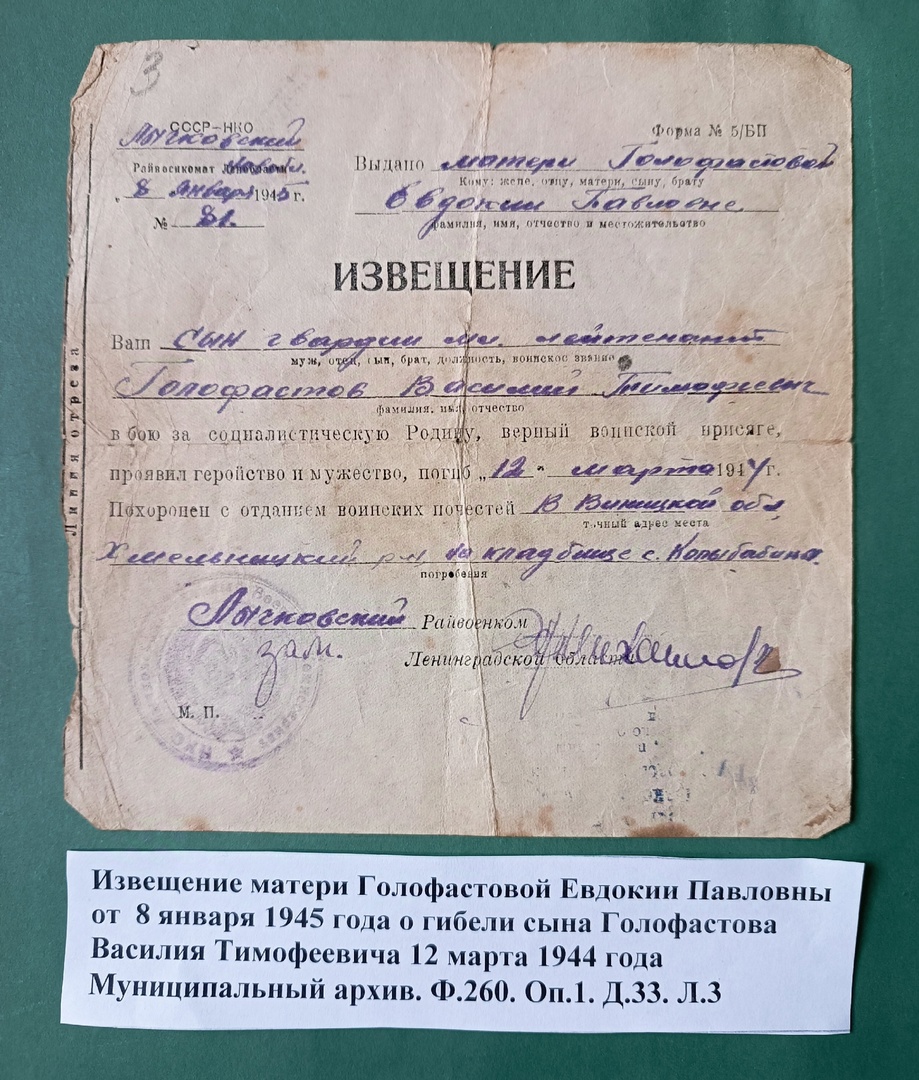 3
СССР-НКО
Лычковский
Райвоенкомат Ленобласти
„ 8 " января 1945 г.
№ 81.
Форма № 5/БП
Выдано матери Голофастовой
Кому: жене, отцу, матери, сыну, брату
Евдокии Павловне
фамилия, имя, отчество и местожительство
ИЗВЕЩЕНИЕ
Ваш сын гвардии мл. лейтенант
муж, отец, сын, брат, должность, воинское звание
Голофастов Василий Тимофиевич
фамилия, имя, отчество
в бою за социалистическую Родину, верный воинской присяге,
проявил геройство и мужество, погиб „ 12 " марта 1944 г.
Похоронен с отданием воинских почестей в Виницкой обл,
точный адрес места
Хмельницкий р-н, на кладбище с.
погребения
Лычковский Райвоенком
зам.
Ленинградской области
М. П.
Линия отреза
Извещение матери Голофастовой Евдокии Павловны
от 8 января 1945 года о гибели сына Голофастова
Василия Тимофеевича 12 марта 1944 года
Муниципальный архив. Ф.260. Оп.1. Д.33. Л.3